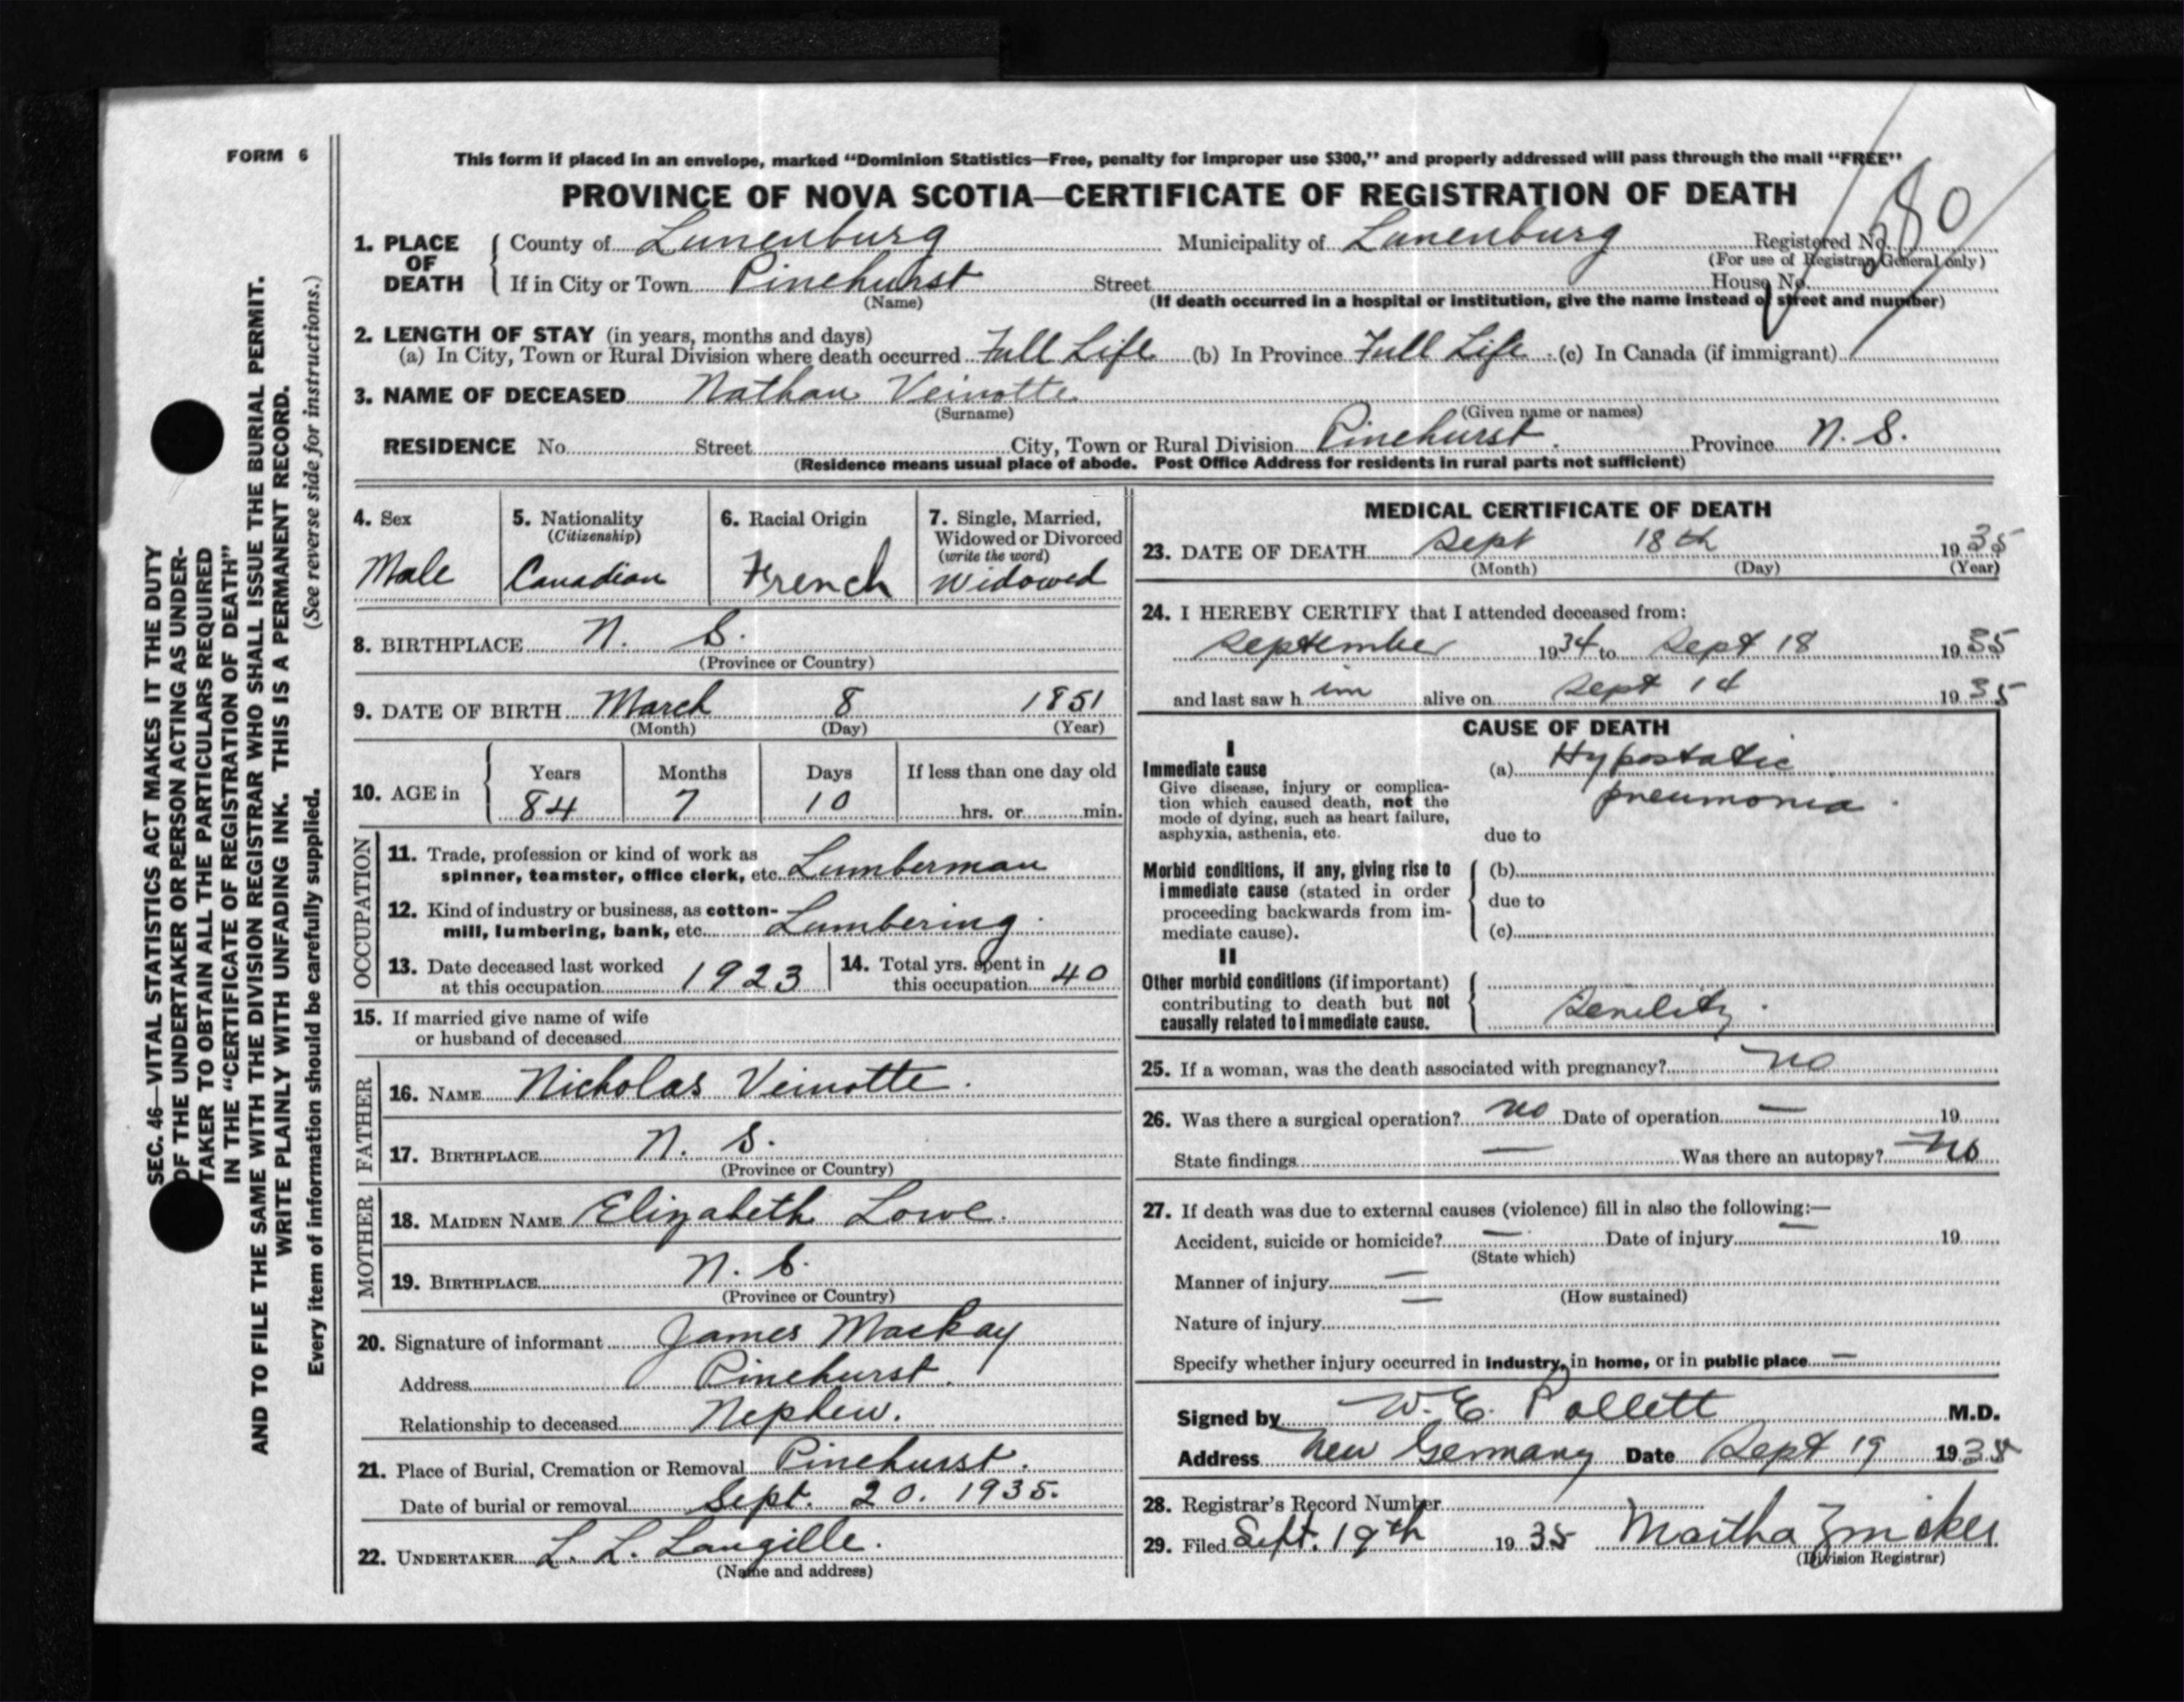 FORM 6
SEC. 46—VITAL STATISTICS ACT MAKES IT THE DUTY
OF THE UNDERTAKER OR PERSON ACTING AS UNDER-
TAKER TO OBTAIN ALL THE PARTICULARS REQUIRED
IN THE "CERTIFICATE OF REGISTRATION OF DEATH"
AND TO FILE THE SAME WITH THE DIVISION REGISTRAR WHO SHALL ISSUE THE BURIAL PERMIT.
WRITE PLAINLY WITH UNFADING INK. THIS IS A PERMANENT RECORD.
Every item of information should be carefully supplied. (See reverse side for instructions.)
This form if placed in an envelope, marked "Dominion Statistics—Free, penalty for improper use $300," and properly addressed will pass through the mail "FREE"
PROVINCE OF NOVA SCOTIA—CERTIFICATE OF REGISTRATION OF DEATH
1. PLACE OF DEATH
County of Lunenburg Municipality of Lunenburg Registered No. 380
(For use of Registrar General only)
If in City or Town Pinehurst Street House No.
(Name) (If death occurred in a hospital or institution, give the name instead of street and number)
2. LENGTH OF STAY (in years, months and days)
(a) In City, Town or Rural Division where death occurred Full Life (b) In Province Full Life (c) In Canada (if immigrant)
3. NAME OF DECEASED Nathan Veinotte
(Surname) (Given name or names)
RESIDENCE No. Street City, Town or Rural Division Pinehurst. Province N. S.
(Residence means usual place of abode. Post Office Address for residents in rural parts not sufficient)
4. Sex
Male
5. Nationality
(Citizenship)
Canadian
6. Racial Origin
French
7. Single, Married,
Widowed or Divorced
(write the word)
Widowed
8. BIRTHPLACE N. S.
(Province or Country)
9. DATE OF BIRTH March 8 1851
(Month) (Day) (Year)
10. AGE in
Years Months Days If less than one day old
84 7 10 hrs. or min.
OCCUPATION
11. Trade, profession or kind of work as
spinner, teamster, office clerk, etc. Lumberman
12. Kind of industry or business, as cotton-
mill, lumbering, bank, etc. Lumbering.
13. Date deceased last worked
at this occupation 1923
14. Total yrs. spent in
this occupation 40
15. If married give name of wife
or husband of deceased
FATHER
16. NAME Nicholas Veinotte.
17. BIRTHPLACE N. S.
(Province or Country)
MOTHER
18. MAIDEN NAME Elizabeth Lowe.
19. BIRTHPLACE N. S.
(Province or Country)
20. Signature of informant James Mackay
Address Pinehurst.
Relationship to deceased Nephew.
21. Place of Burial, Cremation or Removal Pinehurst.
Date of burial or removal Sept. 20. 1935.
22. UNDERTAKER L. L. Langille.
(Name and address)
MEDICAL CERTIFICATE OF DEATH
23. DATE OF DEATH Sept 18th 1935
(Month) (Day) (Year)
24. I HEREBY CERTIFY that I attended deceased from:
September 1934 to Sept 18 1935
and last saw him alive on Sept 14 1935
CAUSE OF DEATH
I
Immediate cause
Give disease, injury or complica-
tion which caused death, not the
mode of dying, such as heart failure,
asphyxia, asthenia, etc.
(a) Hypostatic
pneumonia.
due to
Morbid conditions, if any, giving rise to
immediate cause (stated in order
proceeding backwards from im-
mediate cause).
(b)
due to
(c)
II
Other morbid conditions (if important)
contributing to death but not
causally related to immediate cause.
Senility.
25. If a woman, was the death associated with pregnancy? no
26. Was there a surgical operation? no Date of operation — 19
State findings — Was there an autopsy? no
27. If death was due to external causes (violence) fill in also the following:—
Accident, suicide or homicide? — Date of injury — 19
(State which)
Manner of injury —
(How sustained)
Nature of injury —
Specify whether injury occurred in industry, in home, or in public place —
Signed by W. E. Pollett M.D.
Address New Germany Date Sept 19 1935
28. Registrar's Record Number
29. Filed Sept. 19th 1935 Martha Zwicker
(Division Registrar)